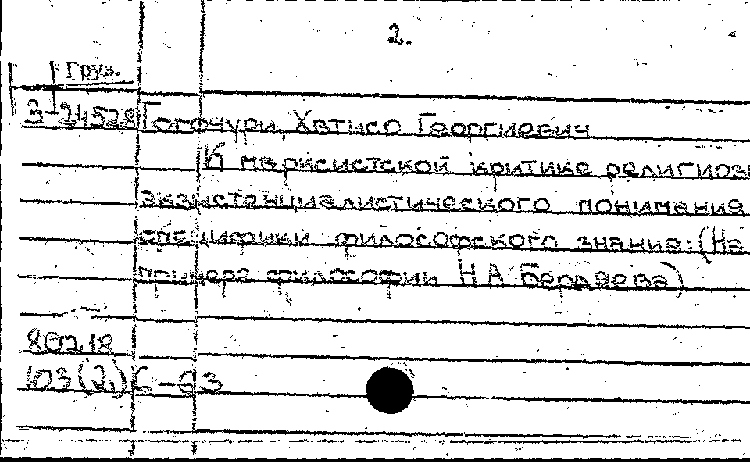 2.
Груз.
3-24528 Гогочури, Хвтисо Георгиевич
К марксистской критике религиоз
экзистенциалистического понимания
специфики философского знания: (На
примере философии Н.А. Бердяева)
80218
103(2)6-93